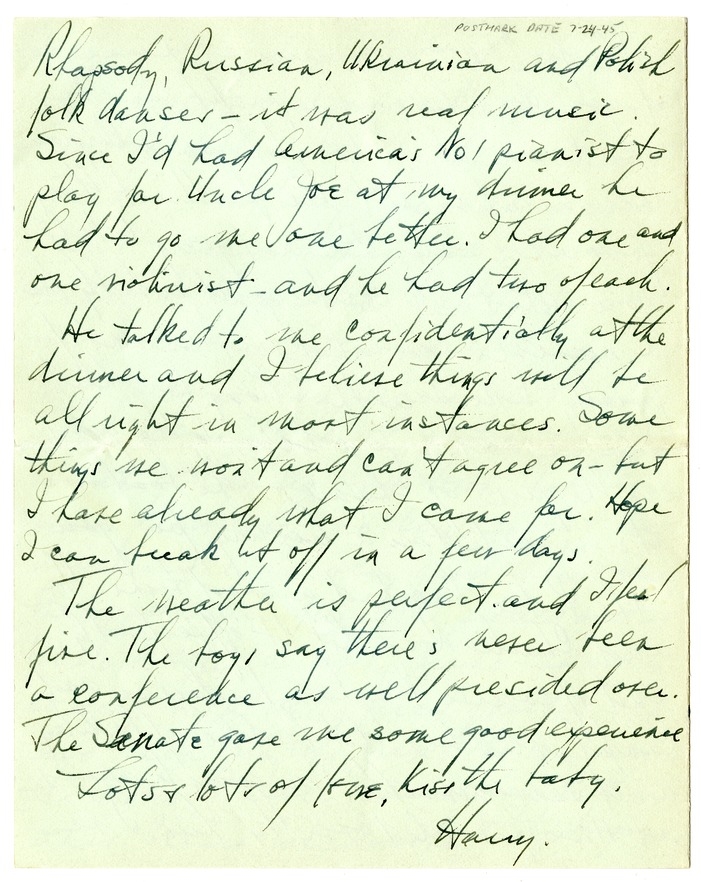 POSTMARK DATE 7-24-45
Rhapsody, Russian, Ukrainian and Polish
folk danses – it was real music.
Since I'd had America's No 1 pianist to
play for Uncle Joe at my dinner he
had to go me one better. I had one and
one violinist – and he had two of each.
He talked to me confidentially at the
dinner and I believe things will be
all right in most instances. Some
things we won't and can't agree on – but
I have already what I came for. Hope
I can break it off in a few days.
The weather is perfect and I feel
fine. The boys say there's never been
a conference as well presided over.
The Senate gave me some good experience
Lots & lots of love, Kiss the baby,
Harry.